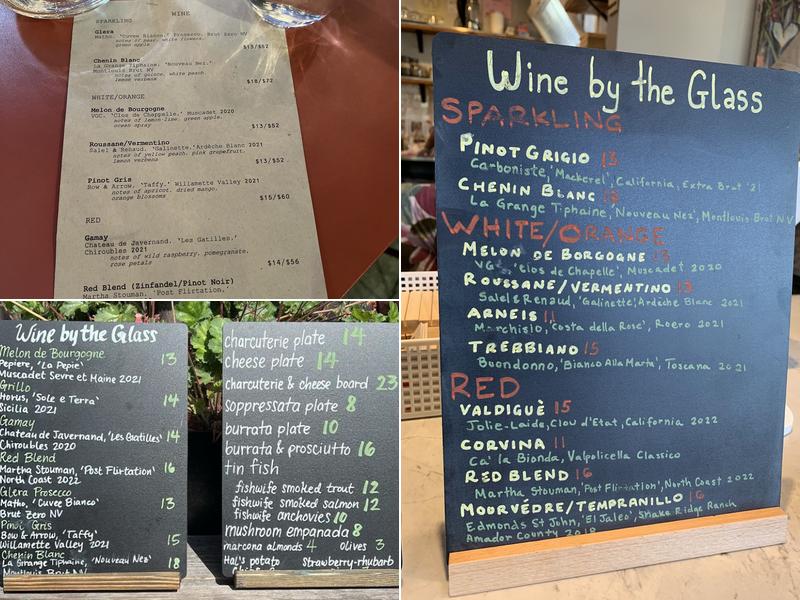 SPARKLING WINE
Glera
Matho, 'Cuvee Bianco,' Prosecco, Brut Zero NV
notes of pear, white flowers,
green apple
$13/$52
Chenin Blanc
La Grange Tiphaine, 'Nouveau Nez,'
Montlouis Brut NV
notes of quince, white peach,
lemon verbena
$18/$72
WHITE/ORANGE
Melon de Bourgogne
VGC, 'Clos de Chappelle,' Muscadet 2020
notes of lemon-lime, green apple,
ocean spray
$13/$52
Roussane/Vermentino
Salel & Renaud, 'Galinette,' Ardèche Blanc 2021
notes of yellow peach, pink grapefruit,
lemon verbena
$13/$52
Pinot Gris
Bow & Arrow, 'Taffy,' Willamette Valley 2021
notes of apricot, dried mango,
orange blossoms
$15/$60
RED
Gamay
Chateau de Javernand, 'Les Gatilles,'
Chiroubles 2021
notes of wild raspberry, pomegranate,
rose petals
$14/$56
Red Blend (Zinfandel/Pinot Noir)
Martha Stouman, 'Post Flirtation,'
Wine by the Glass
Melon de Bourgogne
Pepiere, 'La Pepie' 13
Muscadet Sevre et Maine 2021
Grillo
Horus, 'Sole e Terra' 14
Sicilia 2021
Gamay
Chateau de Javernand, 'Les Gatilles' 14
Chiroubles 2020
Red Blend
Martha Stouman, 'Post Flirtation' 16
North Coast 2022
Glera Prosecco
Matho, 'Cuvee Bianco' 13
Brut Zero NV
Pinot Gris
Bow & Arrow, 'Taffy' 15
Willamette Valley 2021
Chenin Blanc
La Grange Tiphaine, 'Nouveau Nez' 18
Montlouis Brut NV
charcuterie plate 14
cheese plate 14
charcuterie & cheese board 23
soppressata plate 8
burrata plate 10
burrata & prosciutto 16
tin fish
fishwife smoked trout 12
fishwife smoked salmon 12
fishwife anchovies 10
mushroom empanada 8
marcona almonds 4 olives 3
Hal's potato strawberry-rhubarb
Wine by the Glass
SPARKLING
PINOT GRIGIO 13
Carboniste, 'Mackerel', California, Extra Brut '21
CHENIN BLANC
La Grange Tiphaine, Nouveau Nez', Montlouis Brut NV
WHITE/ORANGE
MELON DE BOURGOGNE 13
'Clos de Chapelle', Muscadet 2020
ROUSSANE/VERMENTINO 13
Salel & Renaud, 'Galinette', Ardèche Blanc 2021
ARNEIS 11
Marchisio, 'Costa della Rose', Roero 2021
TREBBIANO 15
Buondonno, 'Bianco Alla Marta', Toscana 2021
RED
VALDIGUÈ 15
Jolie-Laide, Clou d'Etat, California 2022
CORVINA 11
Ca' la Bionda, Valpolicella Classico
RED BLEND 16
Martha Stouman, 'Post Flirtation', North Coast 2022
MOORVÉDRE/TEMPRANILLO 16
Edmonds St John, 'El Jaleo', Shake Ridge Ranch
Amador County 2018